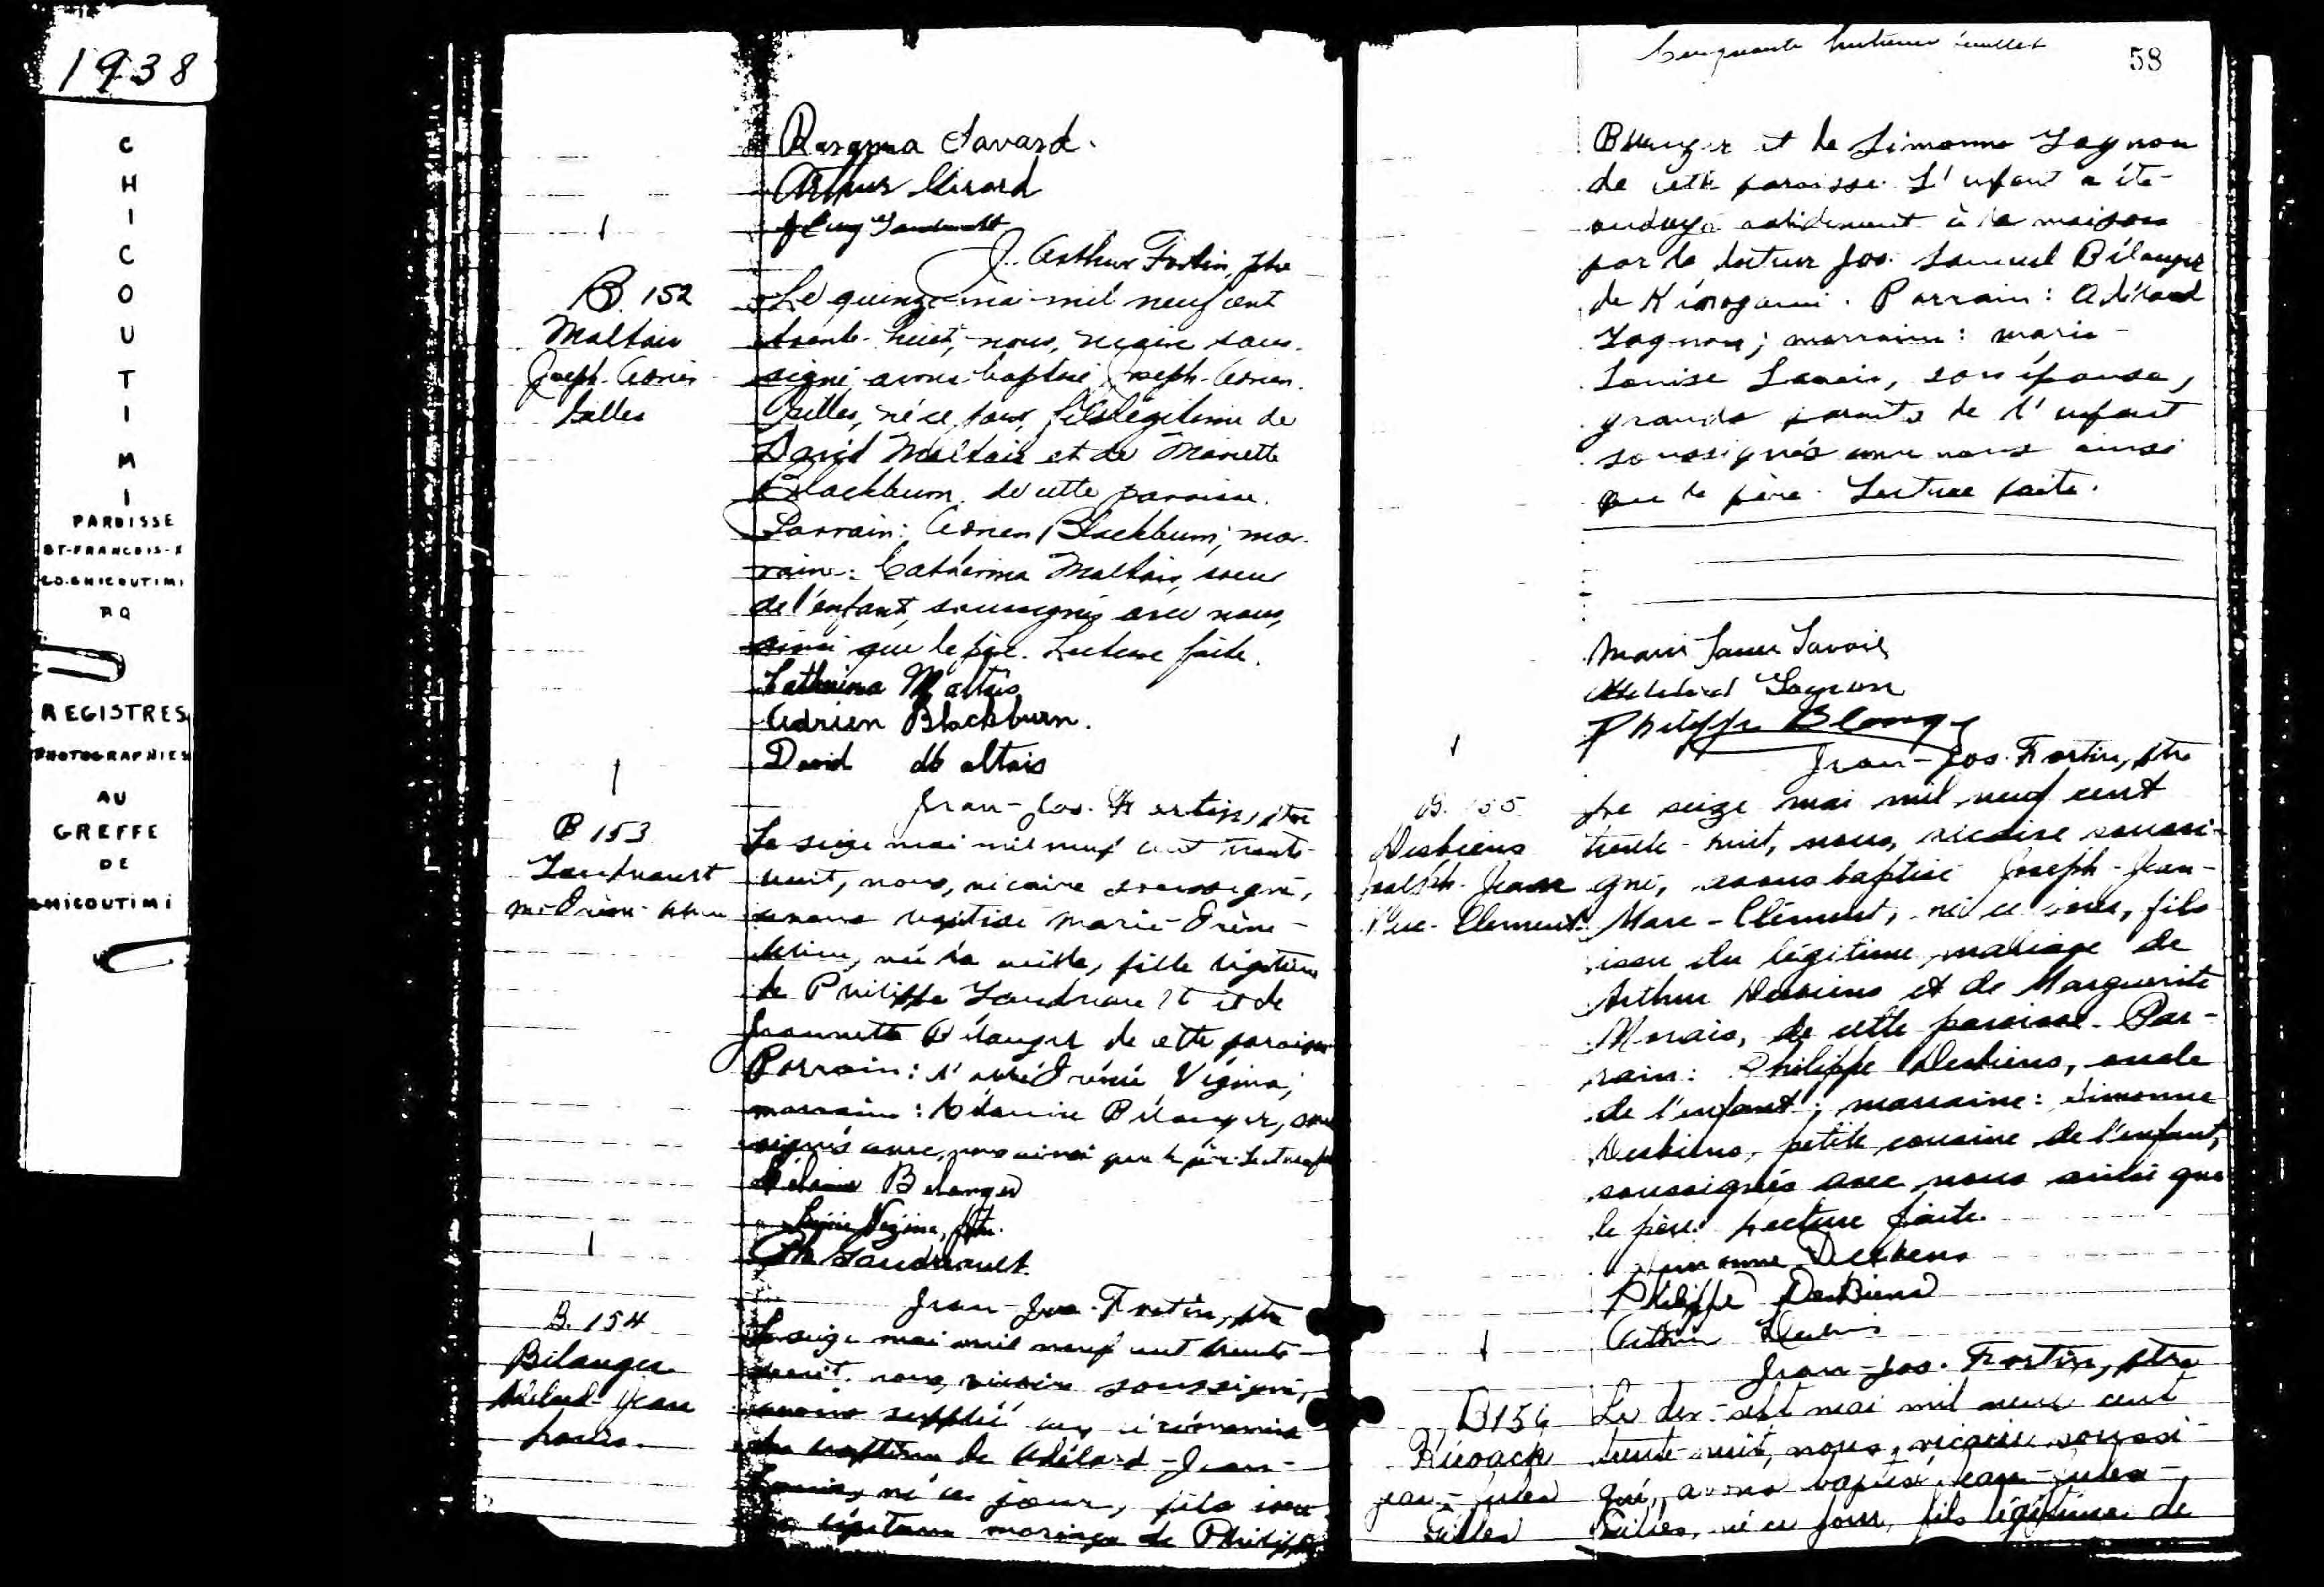 1938
CHICOUTIMI
PAROISSE
ST-FRANCOIS-X
CO. CHICOUTIMI
P Q
REGISTRES
PHOTOGRAPHIES
AU
GREFFE
DE
CHICOUTIMI
Savard.
Arthur Girard
J. Arthur Fortin, ptre
B. 152
Maltais
Joseph-Adrien
Gilles
Le quinze mai mil neuf cent
trente-huit, nous, vicaire sous-
signé, avons baptisé Joseph-Adrien
Gilles, né ce jour, fils légitime de
David Maltais et de Mariette
Blackburn, de cette paroisse.
Parrain: Adrien Blackburn; mar-
raine: Cathérina Maltais, soeur
de l'enfant, soussignés avec nous,
ainsi que le père. Lecture faite.
Cathérina Maltais
Adrien Blackburn.
David Maltais
Jean-Jos. Fortin, ptre
B 153
Gaudreault
M-Irène-
Le seize mai mil neuf cent trente-
huit, nous, vicaire soussigné,
avons baptisé Marie-Irène-
née la veille, fille légitime
de Philippe Gaudreault et de
Jeannette Bélanger de cette paroisse
Parrain: l'abbé Vézina;
marraine: Bélanger, sous
signés avec nous ainsi que le père. Lecture faite
Bélanger
Vézina, ptre.
Ph. Gaudreault.
Jean-Jos. Fortin, ptre
B. 154
Bélanger
Adélard-Jean
Louis.
Le seize mai mil neuf cent trente-
huit, nous, vicaire soussigné,
avons suppléé aux cérémonies
du baptême de Adélard-Jean-
Louis, né ce jour, fils issu
du légitime mariage de Philippe
Cinquante huitième feuillet
58
Bélanger et de Simonne Gagnon
de cette paroisse. L'enfant a été
ondoyé validement à la maison
par le docteur Jos. Samuel Bélanger
de Kénogami. Parrain: Adélard
Gagnon; marraine: Marie-
Louise Savoie, son épouse,
grands parents de l'enfant
soussignés avec nous ainsi
que le père. Lecture faite.
Marie Savoie
Adélard Gagnon
Philippe Bélanger
Jean-Jos. Fortin, ptre
B. 155
Desbiens
Joseph-Jean
Marc-Clément
Le seize mai mil neuf cent
trente-huit, nous, vicaire soussi-
gné, avons baptisé Joseph-Jean-
Marc-Clément, né ce jour, fils
issu du légitime mariage de
Arthur Desbiens et de Marguerite
Morais, de cette paroisse. Par-
rain: Philippe Desbiens, oncle
de l'enfant; marraine: Simonne
Desbiens, petite cousine de l'enfant,
soussignés avec nous ainsi que
le père. Lecture faite.
Simonne Desbiens
Philippe DesBiens
Arthur Desbiens
Jean-Jos. Fortin, ptre
B 156
Jean-Jules
Gilles
Le dix-sept mai mil neuf cent
trente-huit, nous, vicaire soussi-
gné, avons baptisé Jean-Jules-
Gilles, né ce jour, fils légitime de